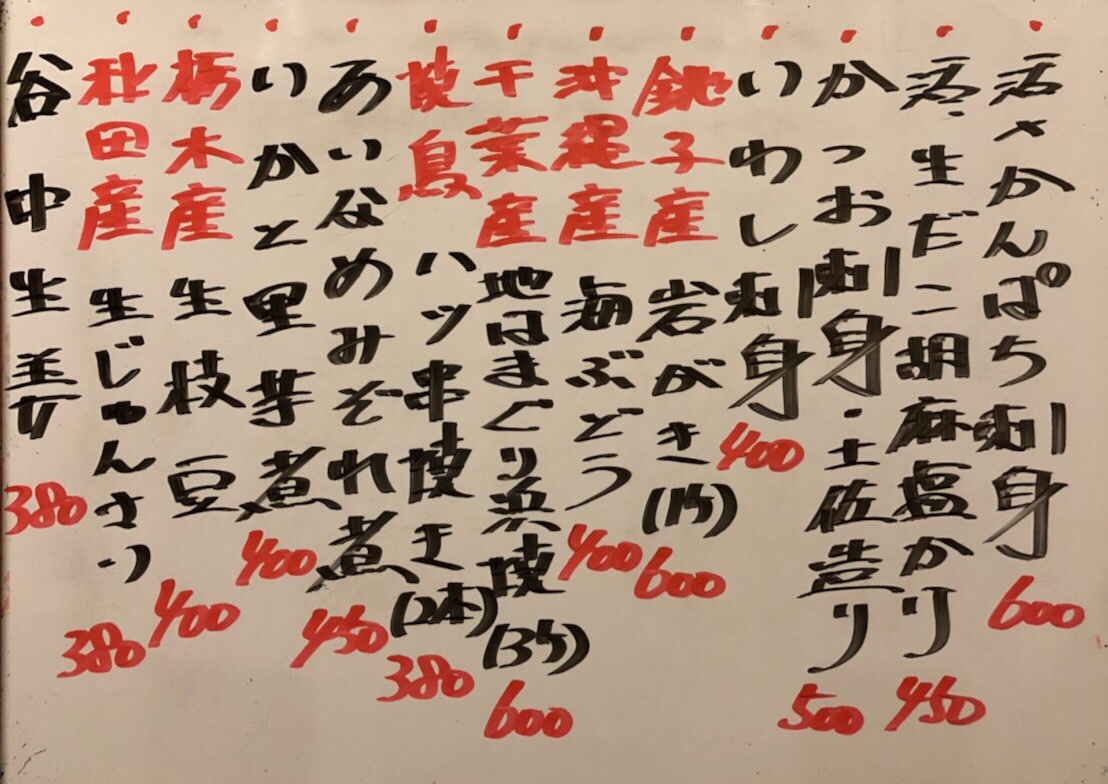 活〆かんぱち刺身 600
活〆生だこ胡麻塩かり 450
かつお刺身・土佐造り 500
いわし刺身 400
銚子産 岩がき(1ケ) 600
沖縄産 海ぶどう 400
千葉産 地はまぐり浜焼(3ケ) 600
焼鳥 ハツ串焼き(2本) 380
あいなめみぞれ煮 450
いかと里芋煮 400
栃木産 生枝豆 400
秋田産 生じゅんさい 380
谷中生姜 380